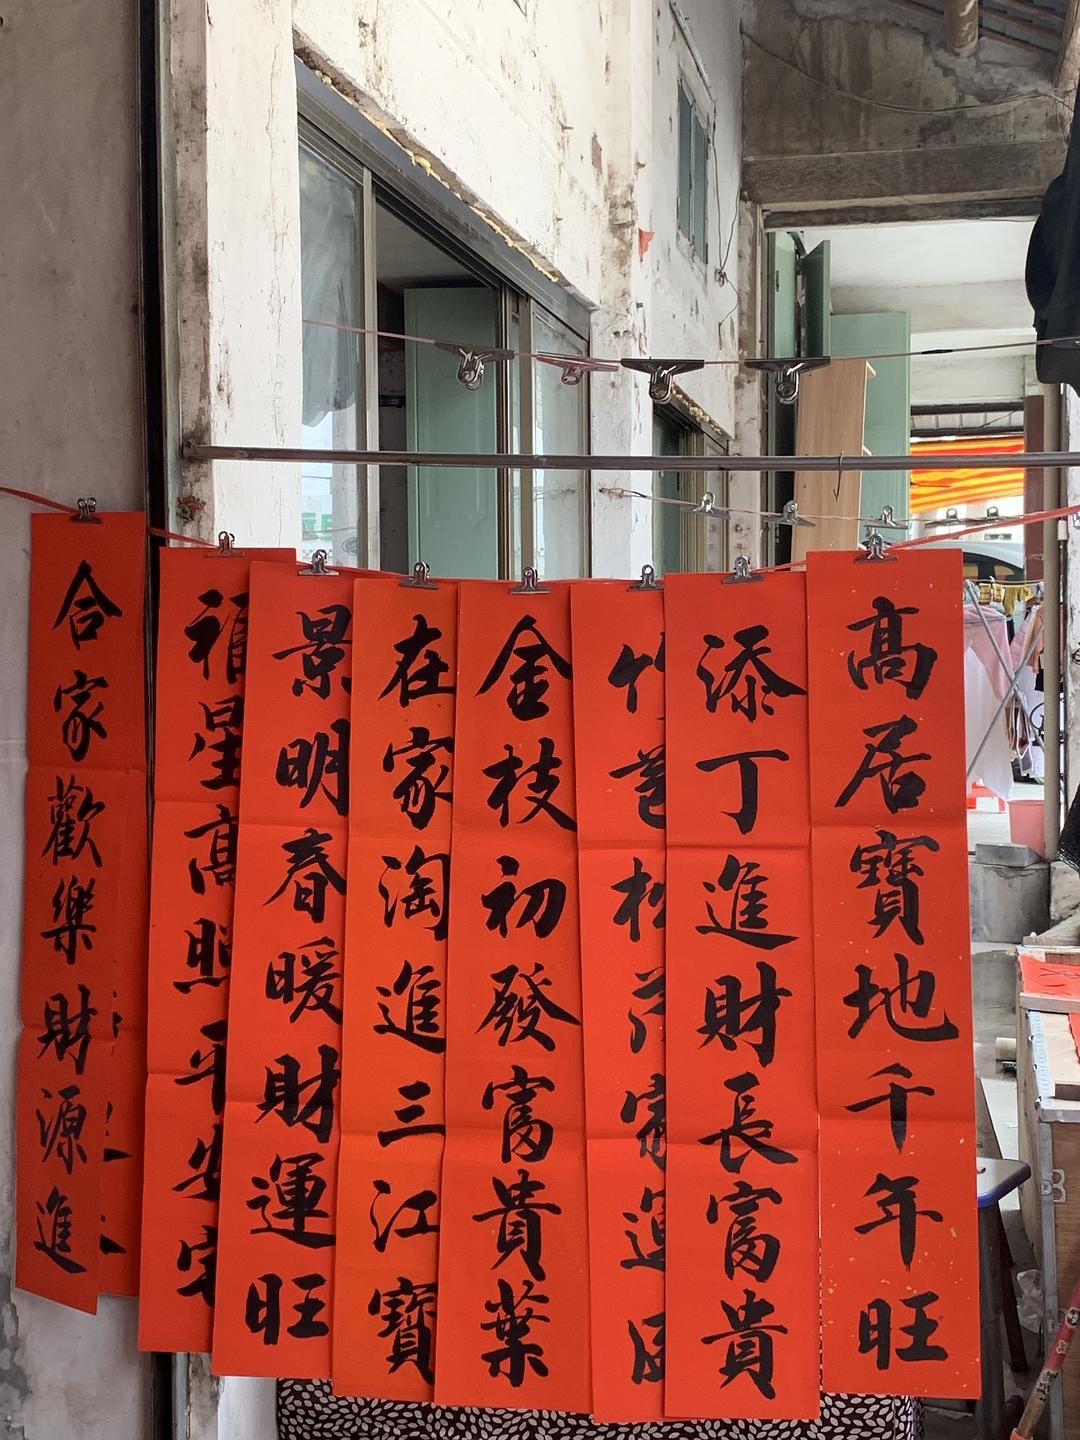 高居寶地千年旺
添丁進財長富貴
竹苞松茂家運
金枝初發富貴葉
在家淘進三江寶
景明春暖財運旺
福星高照平安宅
合家歡樂財源進